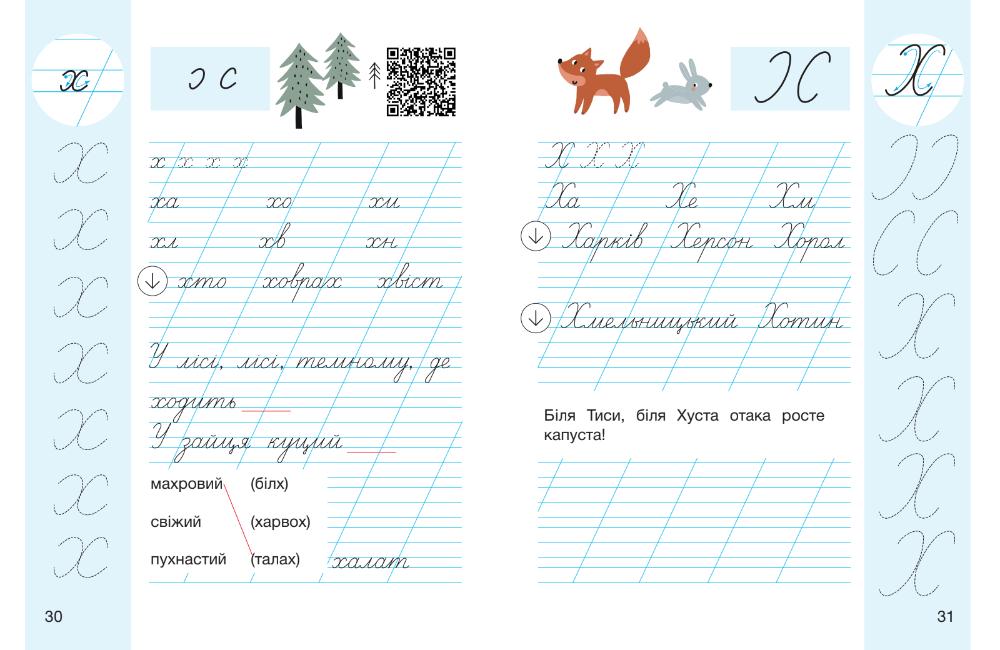 х
Ɔ С
х х х х
ха хо хи
хл хв хн
хто ховрах хвіст
У лісі, лісі, темному, де
ходить
У зайця куций
махровий (білх)
свіжий (харвох)
пухнастий (талах) халат
Х
Х
Х
Х
Х
Х
Х
30
Ɔ С
Х
Х Х Х
Ха Хе Хм
Харків Херсон Хорол
Хмельницький Хотин
Біля Тиси, біля Хуста отака росте
капуста!
Ɔ Ɔ
С С
Х
Х
Х
Х
31